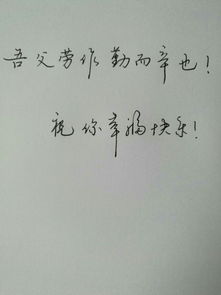 吾父劳作勤而辛也!
祝你幸福快乐!